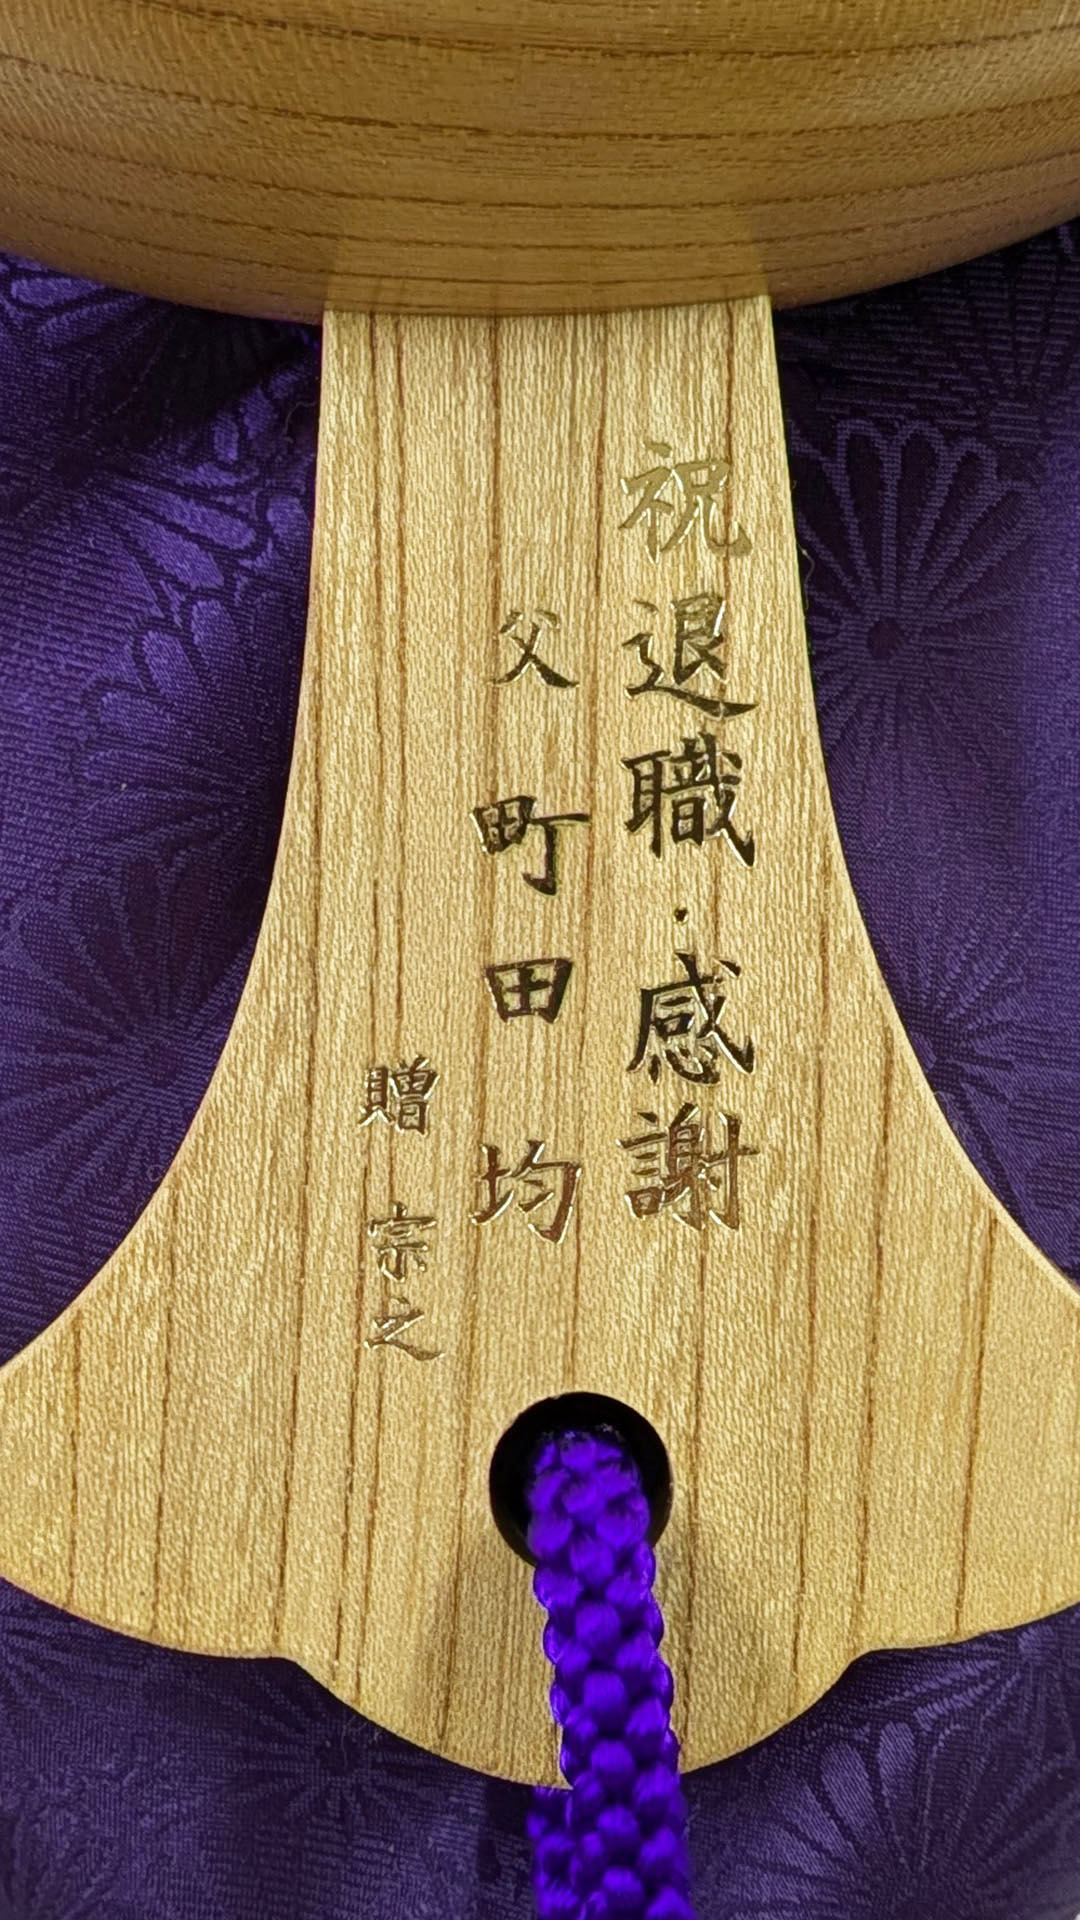 祝退職・感謝
父 町田均
贈 宗之